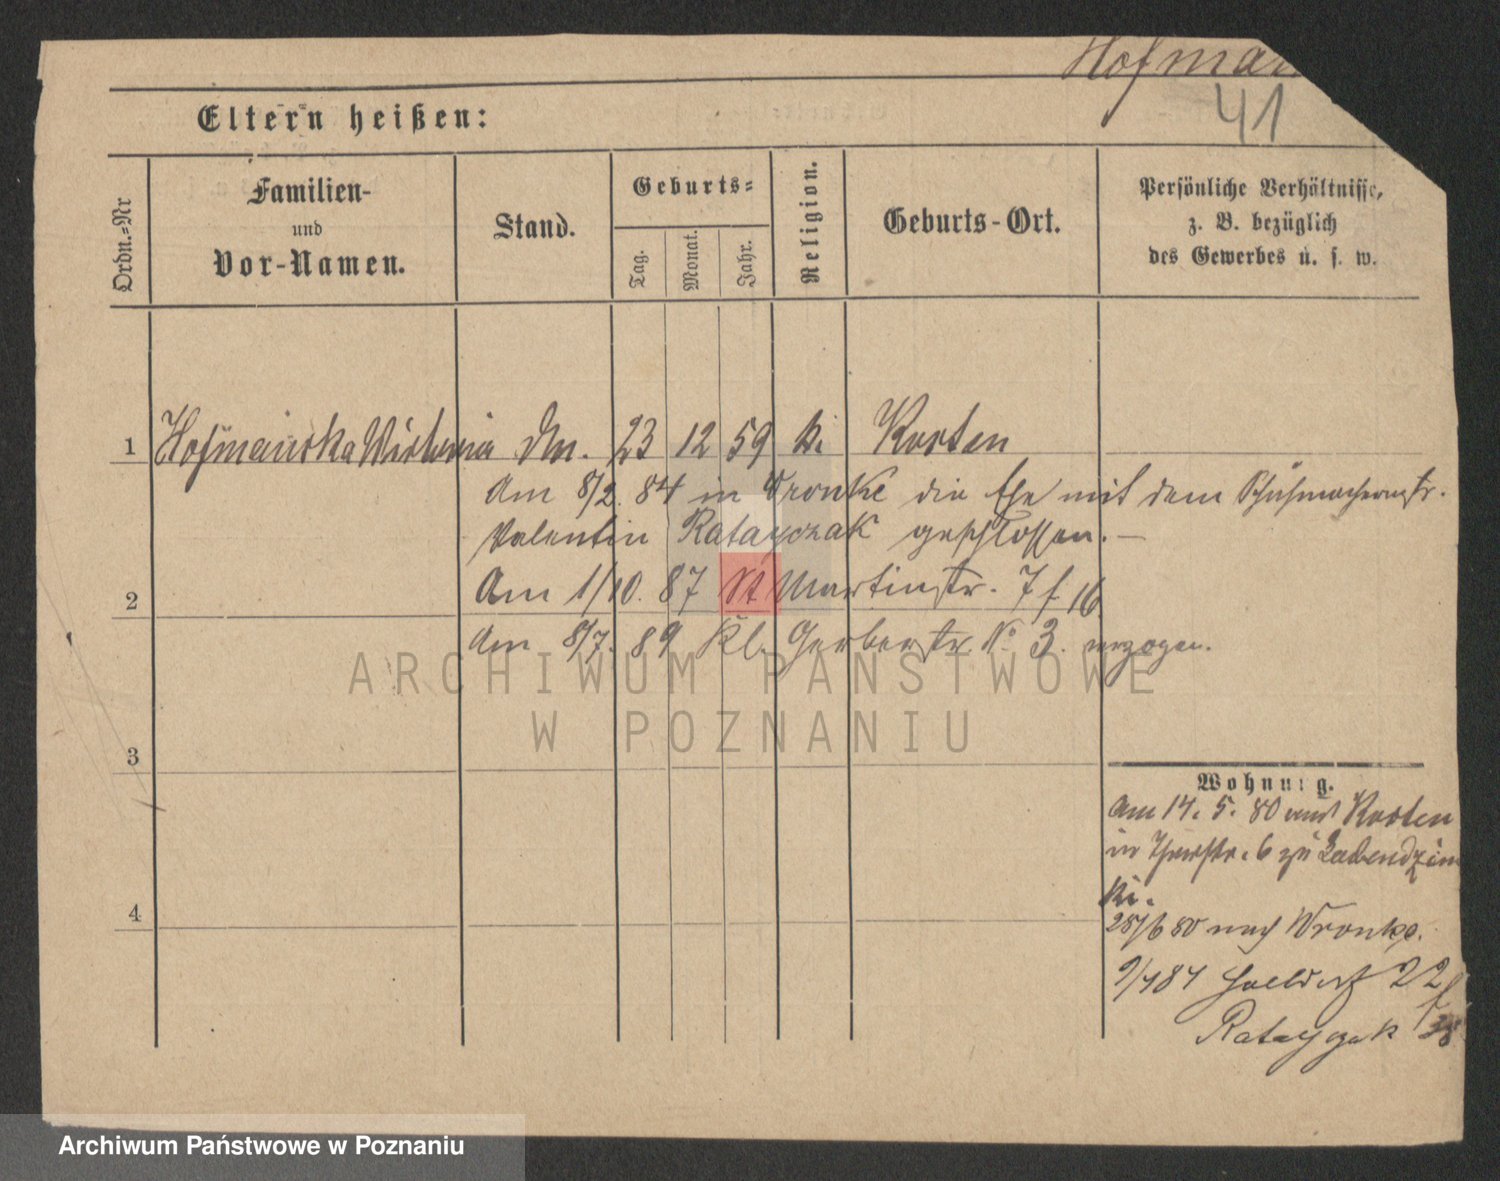 Hofman
41
Eltern heißen:
Ordn.-Nr
Familien-
und
Vor-Namen.
Stand.
Geburts-
Tag.
Monat.
Jahr.
Religion.
Geburts-Ort.
Persönliche Verhältnisse,
z. B. bezüglich
des Gewerbes u. s. w.
1 Hofmańska Victoria 23 12 59 k. Kosten
Am 8/2. 84 in Wronke die Ehe mit dem Schuhmachermstr.
Valentin Ratayczak geschlossen. —
2 Am 1/10. 87 St Martinstr. 7 f. 16
Am 8/7. 89 Kl. Gerberstr. No 3. verzogen.
ARCHIWUM PAŃSTWOWE
W POZNANIU
3
Wohnung.
Am 14. 5. 80 aus Kosten
in 6 zu
ki.
4
28/6 80 nach Wronke.
22
Ratayczak
Archiwum Państwowe w Poznaniu